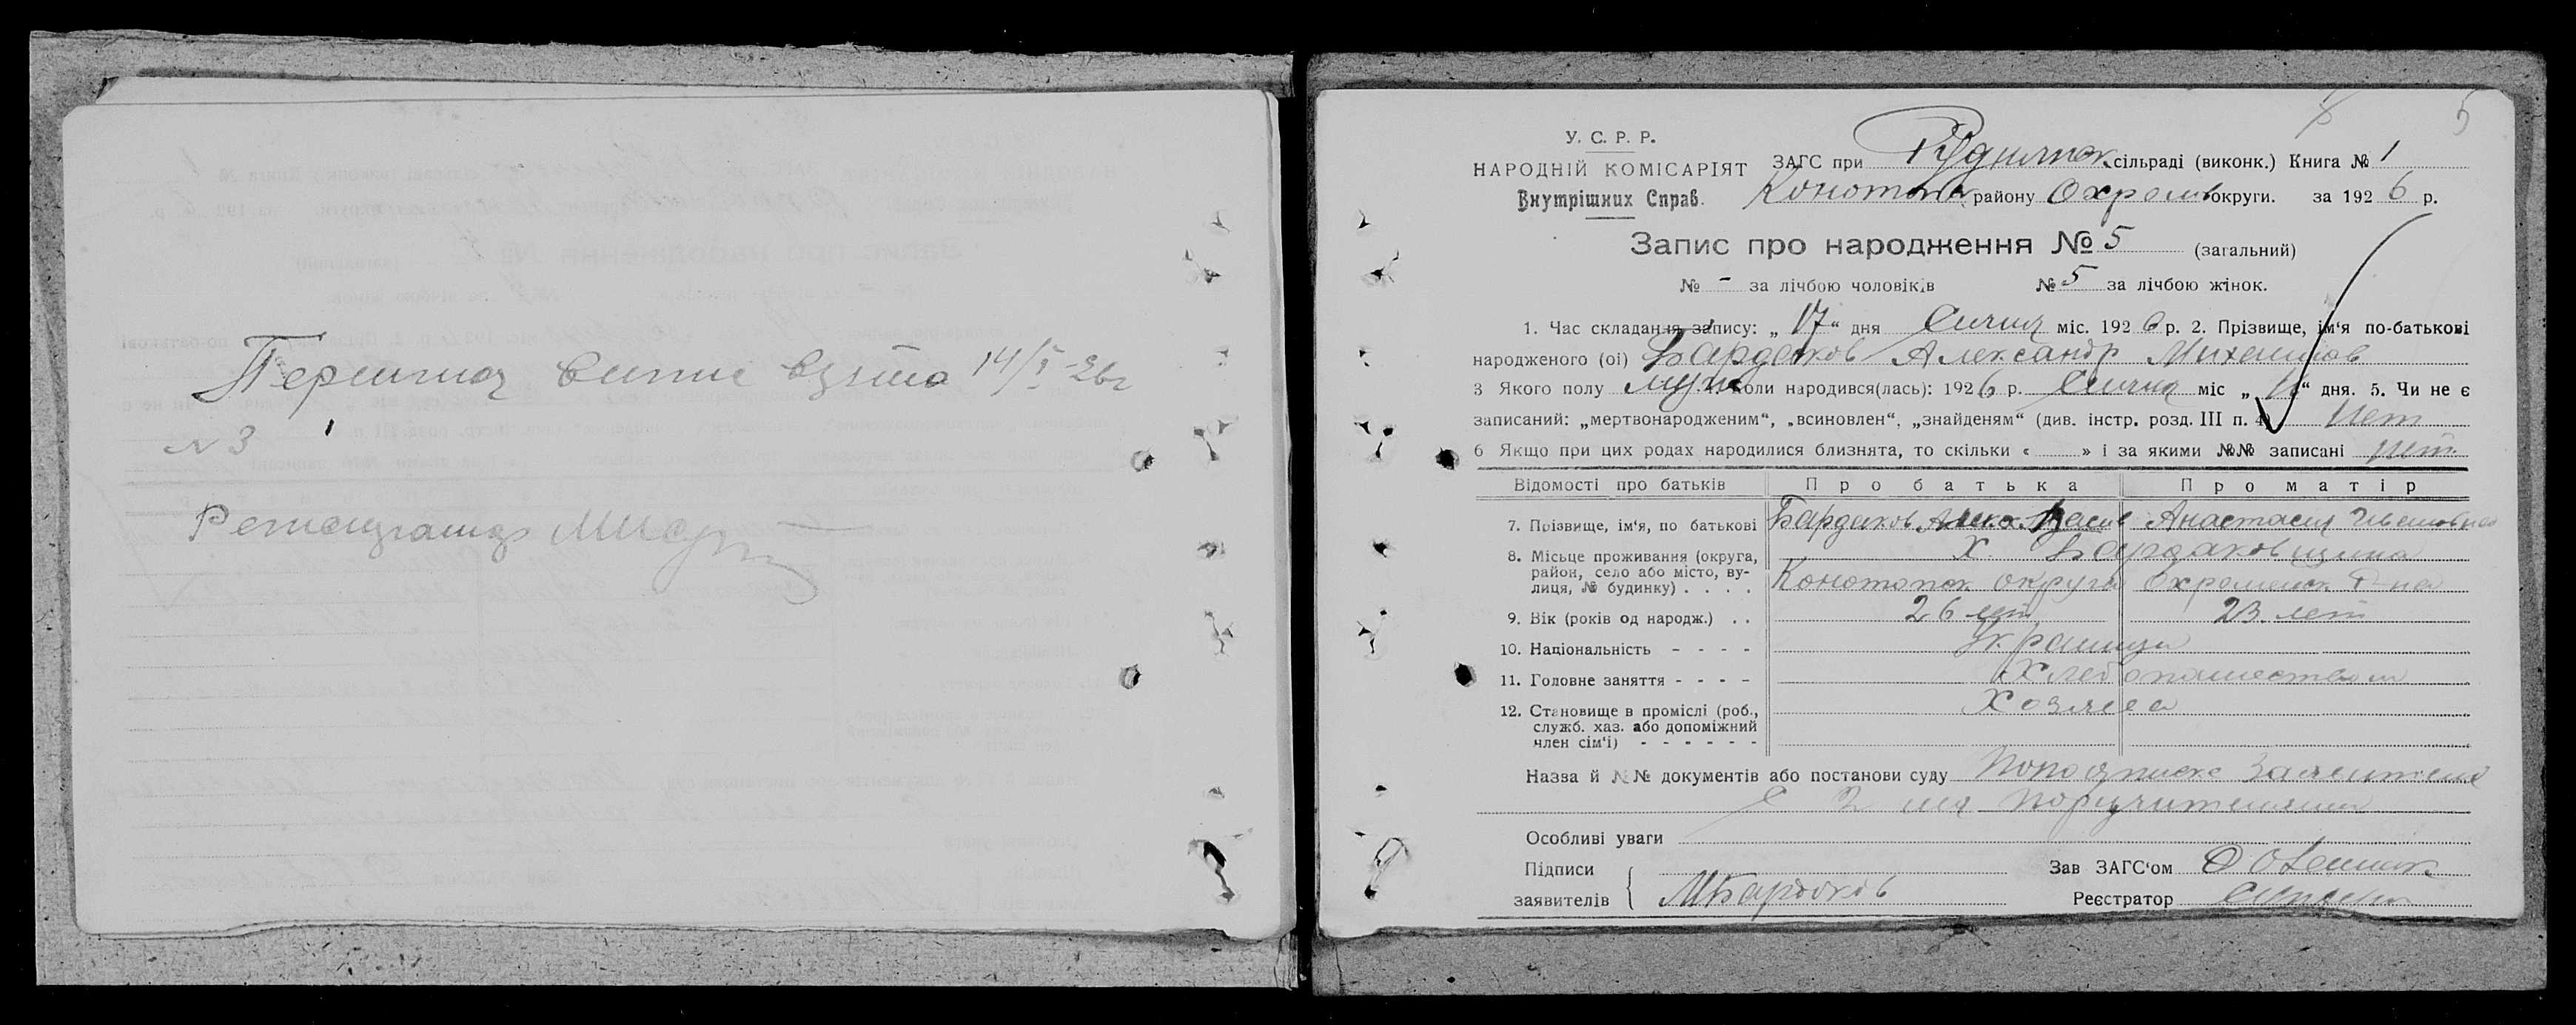 Перший випис взято 14/I-26г
№3
Регистратор
5
У. С. Р. Р.
НАРОДНІЙ КОМІСАРІЯТ
Внутрішних Справ.
ЗАГС при Рудницк. сільраді (виконк.) Книга № 1
Конотопск. району Охрамов округи. за 1926 р.
Запис про народження № 5 (загальний)
№ - за лічбою чоловіків № 5 за лічбою жінок.
1. Час складання запису: „17“ дня Сичня міс. 1926 р. 2. Прізвище, ім‘я по-батькові
народженого (ої) Бардаков Александр Михаилов
3 Якого полу муж 4. Коли народився(лась): 1926 р. Сичня міс „ “ дня. 5. Чи не є
записаний: „мертвонародженим“, „всиновлен“, „знайденям“ (див. інстр. розд. III п. 4) Нет
6 Якщо при цих родах народилися близнята, то скільки « » і за якими №№ записані нет.
Відомості про батьків Про батька Про матір
7. Прізвище, ім‘я, по батькові Бардаков Анастасия Ивановна
8. Місьце проживання (округа, район, село або місто, ву-лиця, № будинку) . . . . х. Бардаковщина
Конотопск округи Охрамеевск Р-на
9. Вік (років од народж.) . . 26 лет 23 лет
10. Національність - - - - Украинци
11. Головне заняття - - - - Хлебопашеством
12. Становище в промислі (роб., служб. хаз. або допоміжний член сім‘ї) - - - - - - Хозяева
Назва й №№ документів або постанови суду По подписке заявителя
с 2 мя поручителями
Особливі уваги
Підписи
заявителів МБардаков
Зав ЗАГС‘ом
Реєстратор